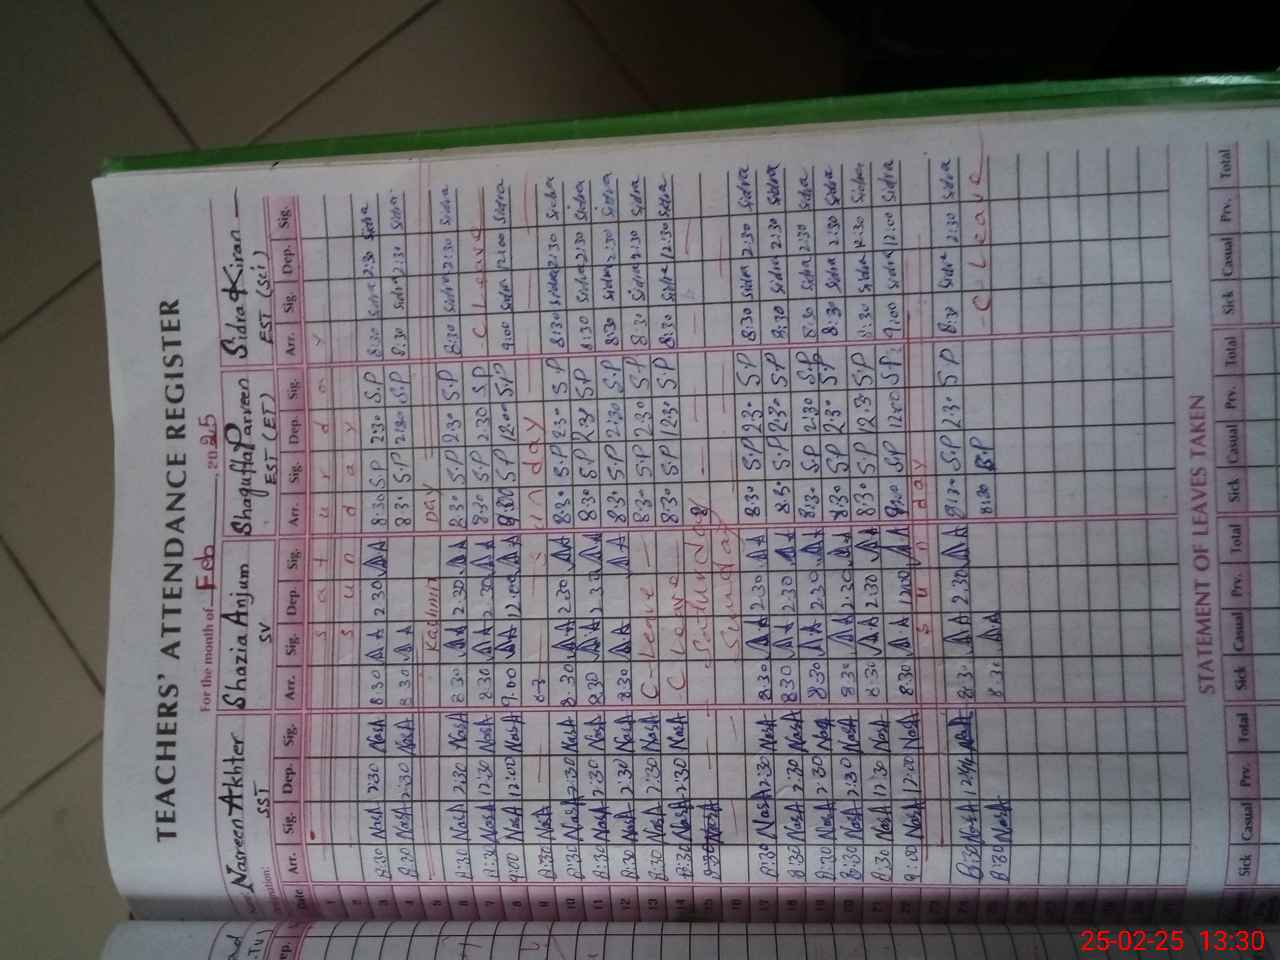 TEACHERS' ATTENDANCE REGISTER
For the month of Feb 2025
Nasreen Akhter Shazia Anjum Shagufta Parveen Sidra Kiran
SST SV EST (ET) EST (Sci)
Date Arr. Sig. Dep. Sig. Arr. Sig. Dep. Sig. Arr. Sig. Dep. Sig. Arr. Sig. Dep. Sig.
1 S a t u r d a y
2 S u n d a y
3 8:30 NasA 2:30 NasA 8:30 AA 2:30 AA 8:30 S.P 2:30 S.P 8:30 Sidra 2:30 Sidra
4 8:30 NasA 2:30 NasA 8:30 AA 8:30 S.P 2:30 S.P 8:30 Sidra 2:30 Sidra
5 Kashmir Day
6 8:30 NasA 2:30 NasA 8:30 AA 2:30 AA 8:30 S.P 2:30 S.P 8:30 Sidra 2:30 Sidra
7 8:30 NasA 12:30 NasA 8:30 AA 2:30 AA 8:30 S.P 2:30 S.P C Leave
8 9:00 NasA 12:00 NasA 9:00 AA 12:00 AA 9:00 S.P 12:00 S.P 9:00 Sidra 12:00 Sidra
9 8:30 NasA Sunday
10 8:30 NasA 2:30 NasA 8:30 AA 2:30 AA 8:30 S.P 2:30 S.P 8:30 Sidra 2:30 Sidra
11 8:30 NasA 2:30 NasA 8:30 AA 2:30 AA 8:30 S.P 2:30 S.P 8:30 Sidra 2:30 Sidra
12 8:30 NasA 2:30 NasA 8:30 AA AA 8:30 S.P 2:30 S.P 8:30 Sidra 2:30 Sidra
13 8:30 NasA 2:30 NasA C-Leave 8:30 S.P 2:30 S.P 8:30 Sidra 2:30 Sidra
14 8:30 NasA 2:30 NasA C Leave 8:30 S.P 12:30 S.P 8:30 Sidra 12:30 Sidra
15 8:30 NasA Saturday
16 Sunday
17 8:30 NasA 2:30 NasA 8:30 AA 2:30 AA 8:30 S.P 2:30 S.P 8:30 Sidra 2:30 Sidra
18 8:30 NasA 2:30 NasA 8:30 AA 2:30 AA 8:30 S.P 2:30 S.P 8:30 Sidra 2:30 Sidra
19 8:30 NasA 2:30 NasA 8:30 AA 2:30 AA 8:30 S.P 2:30 S.P 8:30 Sidra 2:30 Sidra
20 8:30 NasA 2:30 NasA 8:30 AA 2:30 AA 8:30 S.P 2:30 S.P 8:30 Sidra 2:30 Sidra
21 8:30 NasA 12:30 NasA 8:30 AA 2:30 AA 8:30 S.P 12:30 S.P 8:30 Sidra 12:30 Sidra
22 9:00 NasA 12:00 NasA 8:30 AA 12:00 AA 9:00 S.P 12:00 S.P 9:00 Sidra 12:00 Sidra
23 S u n d a y
24 8:30 NasA NasA 8:30 AA 2:30 AA 8:30 S.P 2:30 S.P 8:30 Sidra 2:30 Sidra
8:30 NasA 8:30 AA 8:30 S.P C-Leave
STATEMENT OF LEAVES TAKEN
Sick Casual Prv. Total Sick Casual Prv. Total Sick Casual Prv. Total Sick Casual Prv. Total
25-02-25 13:30